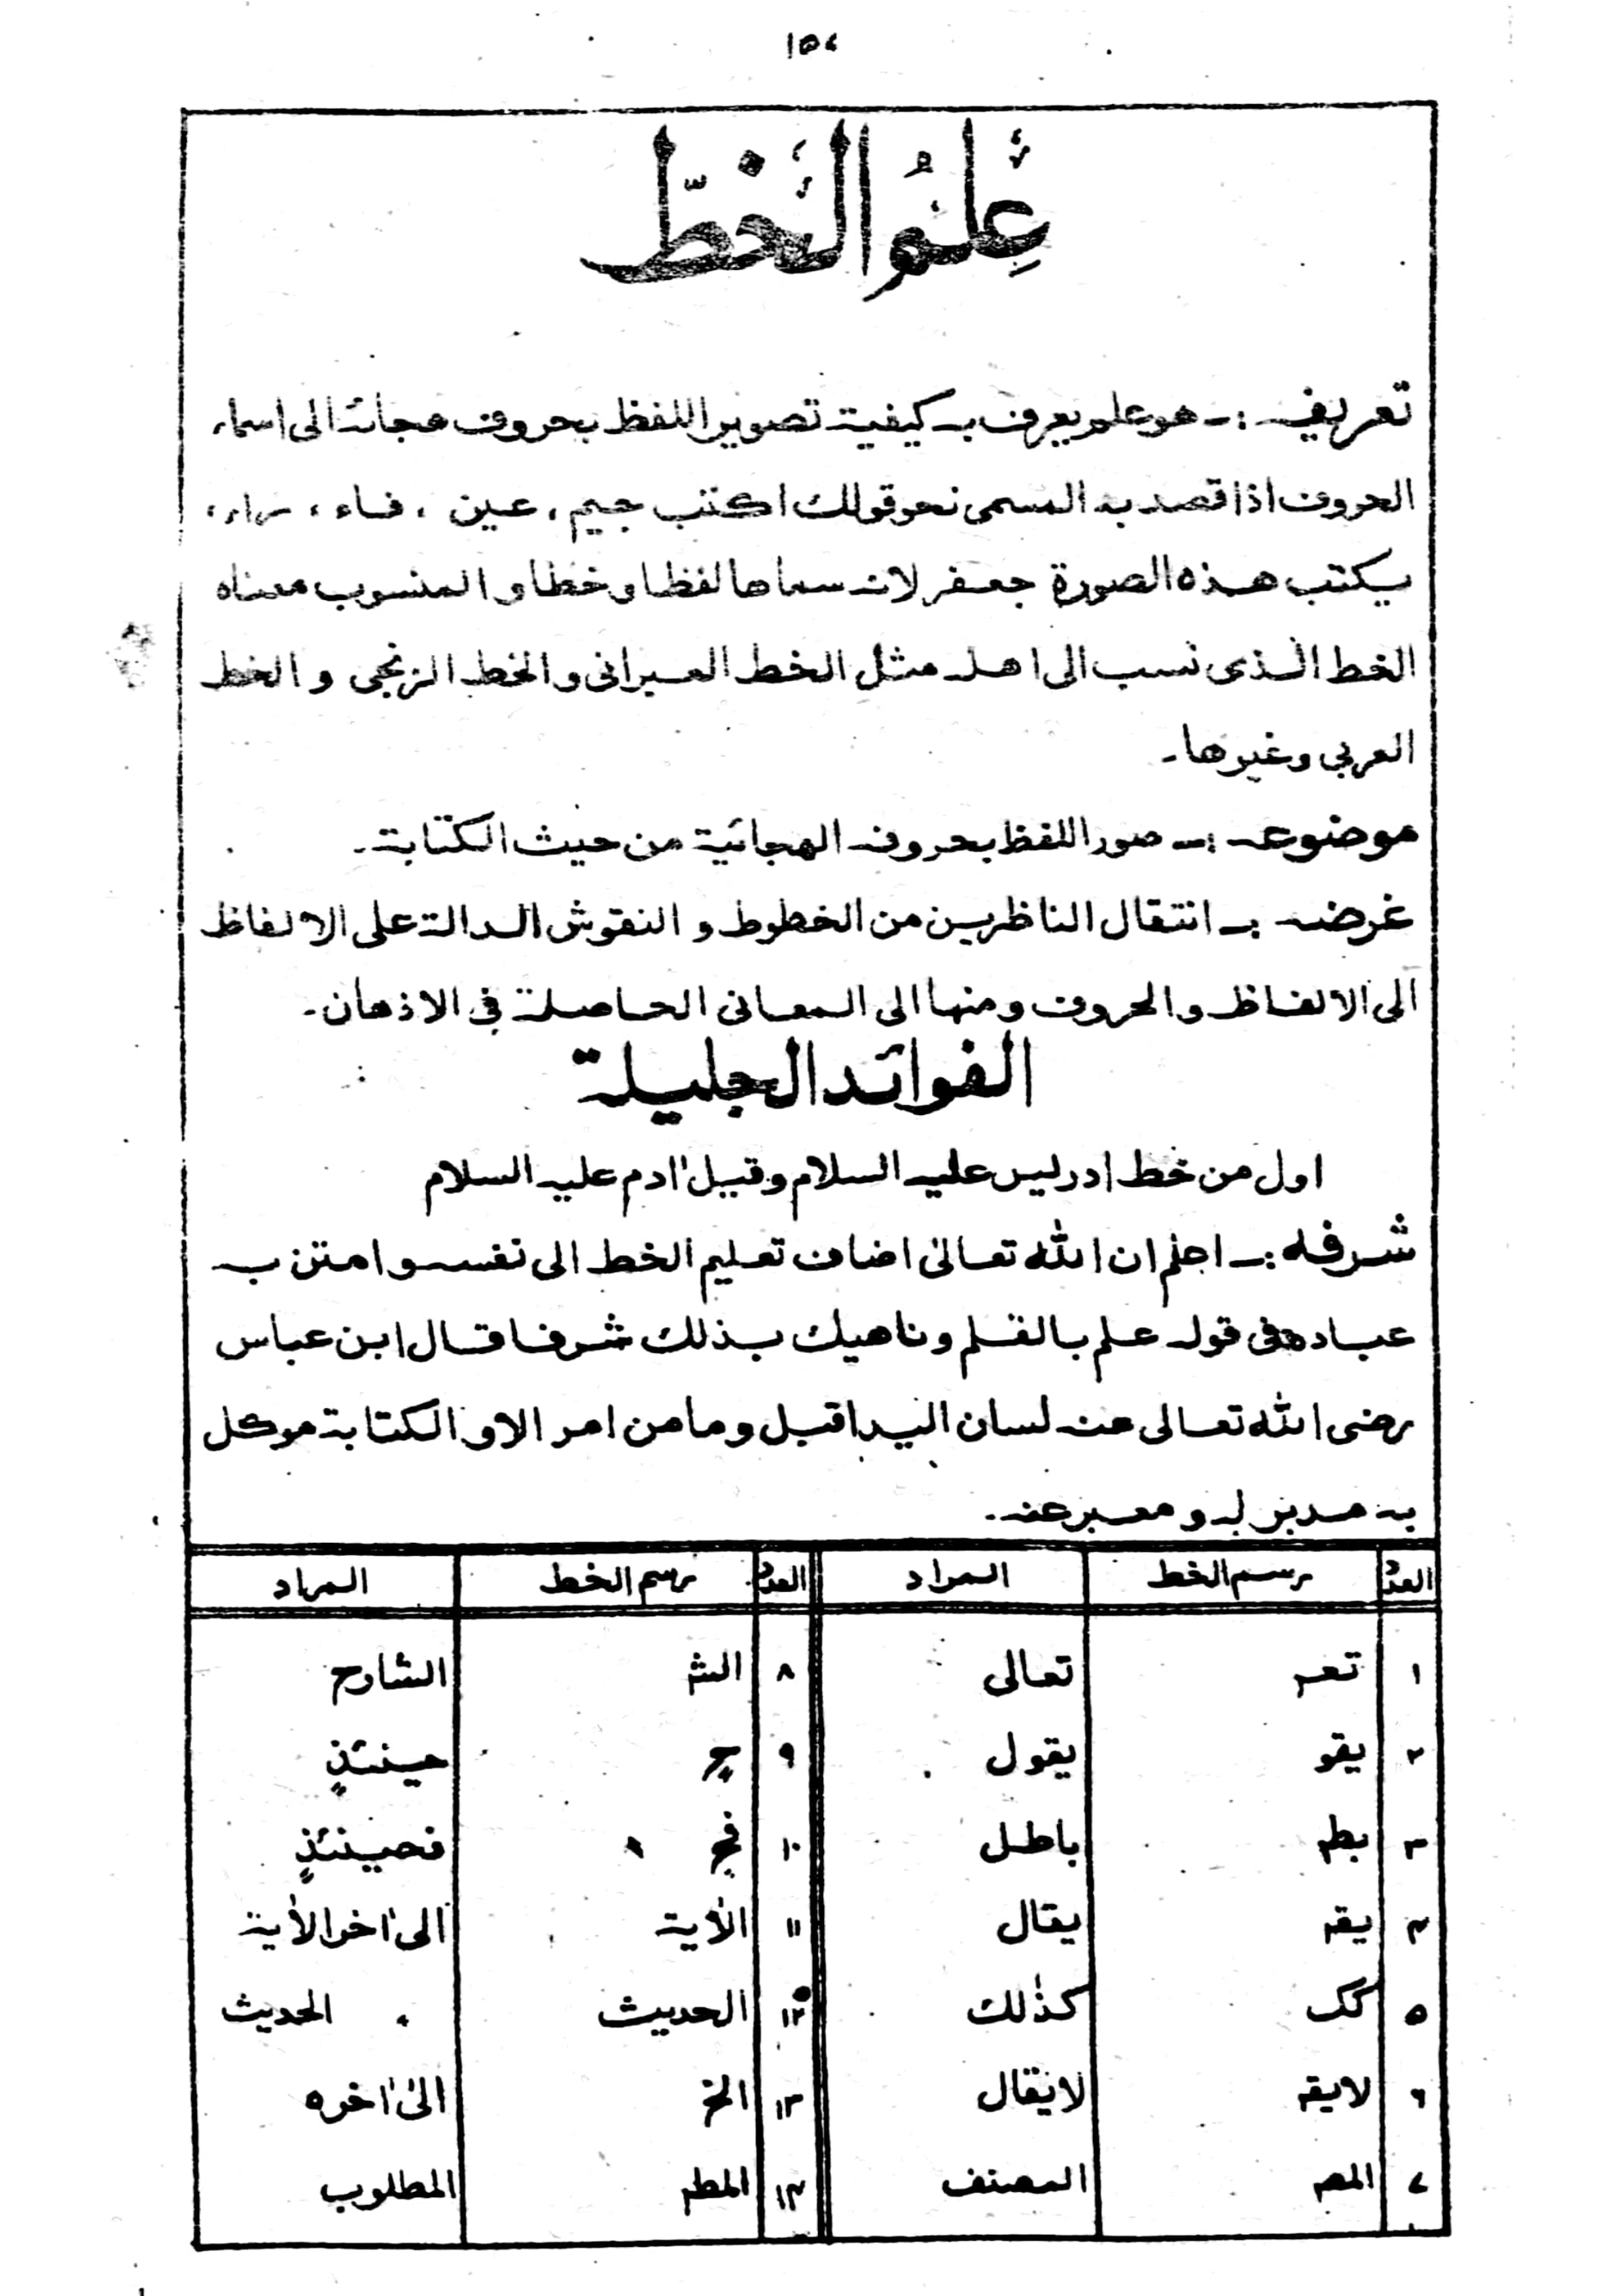 ١٥٧
عِلْمُ الْخَطّ
تعريفہ :ـ هو علم يعرف بہ كيفية تصوير اللفظ بحروف هجائه الى اسماء
الحروف اذا قصد به المسمى نحو قولك اكتب جيم ، عين ، فاء ، راء ،
يكتب هذه الصورة جعفر لانہ سماها لفظا و خطا و المنسوب معناه
الخط الذى نسب الى اهلہ مثل الخط العبرانى و الخط الزنجى و الخط
العربى و غيرها ـ
موضوعہ :ـ صور اللفظ بحروف الهجائية من حيث الكتابة ـ
غرضہ :ـ انتقال الناظرين من الخطوط و النقوش الدالة على الالفاظ
الى الالفاظ و الحروف و منها الى المعانى الحاصلة فى الاذهان ـ
الفوائد الجليلة
اول من خط ادريس عليہ السلام و قيل اٰدم عليہ السلام
شرفه :ـ اعلم ان الله تعالىٰ اضاف تعليم الخط الى نفسہ و امتن بہ
عباده فى قولہ علم بالقلم و ناهيك بذلك شرفا قال ابن عباس
رضى الله تعالى عنہ لسان اليد اقيل و ما من امر الا و الكتابة موكل
بہ مدبر لہ و معبر عنہ ـ
العدد رسم الخط المراد العدد رسم الخط المراد
١ تعہ تعالى ٨ الشہ الشارح
٢ يقو يقول ٩ ح حينئذٍ
٣ بطہ باطل ١٠ فح فحينئذٍ
٤ يقہ يقال ١١ الاٰية الىٰ اٰخر الاٰية
٥ كك كذٰلك ١٢ الحديث الحديث
٦ لايقہ لايقال ١٣ الخ الىٰ اٰخره
٧ المصہ المصنف ١٤ المطہ المطلوب